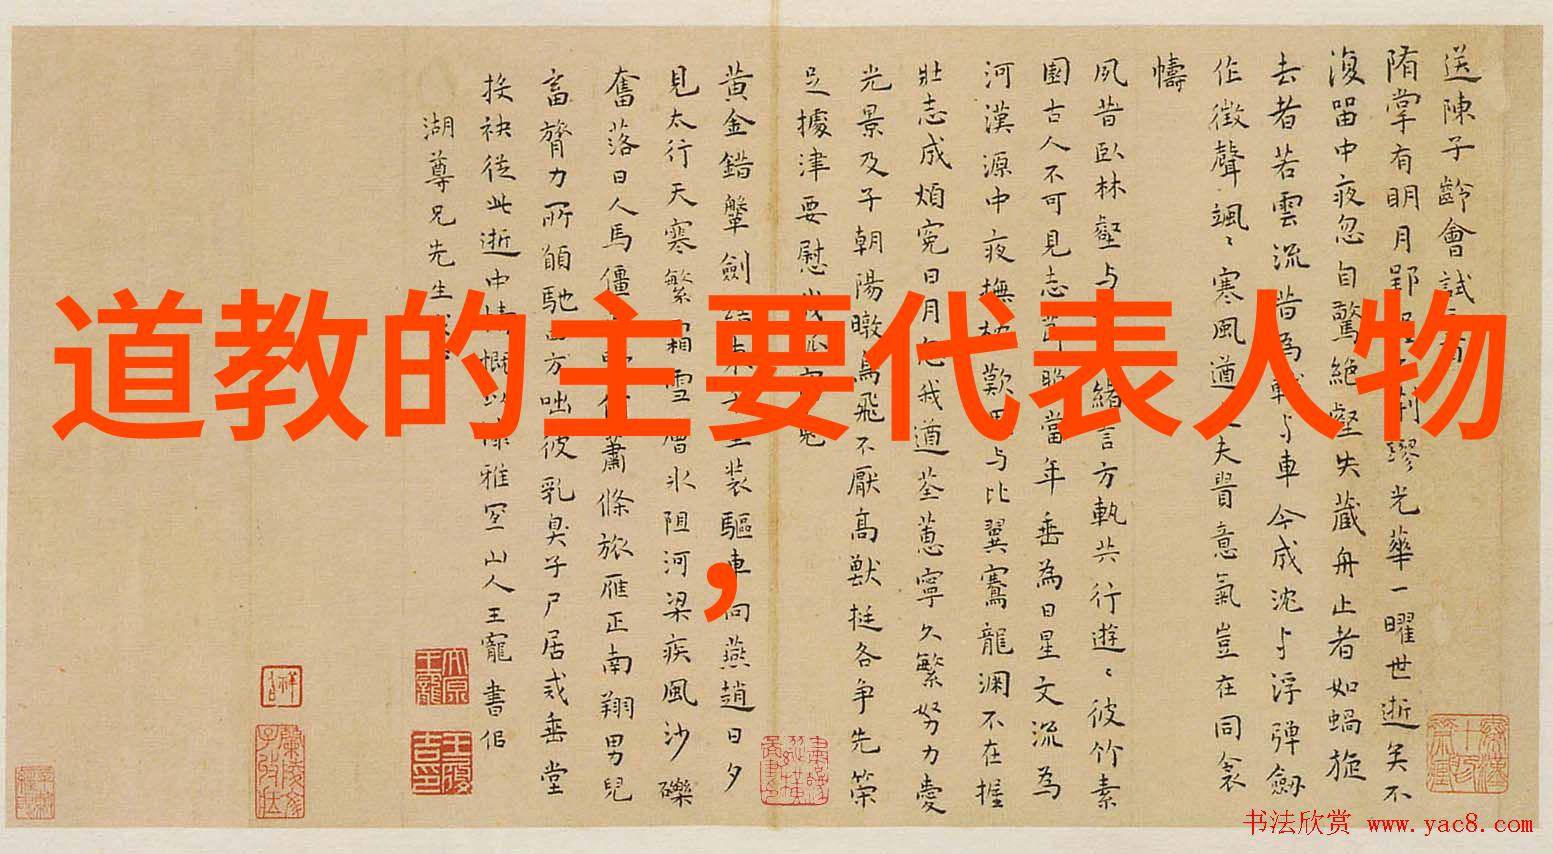 道教的主要代表人物
，
送陳子齡會試
隋掌有明月郢荆璆光華一曜世逝矣不
復留中夜忽自驚絶壑失藏舟止者如蝸旋
去者若雲流昔為戟与車今成沈与浮弹劔
作徵聲颯〻寒風遒夫眥意氣豈在同衾
幬
夙昔臥林壑与緒言方執共行遊〻彼竹素
園古人不可見志節眇當年垂為日星文流為
河漢源中夜撫枕歎与比翼騫龍渊不在握
壯志成煩寃日月我遒荃蕙寧久繁努力愛
光景及子朝陽暾鳥飛不厭高獸挺各争先榮
足據津要慰
黄金錯鞶劍裝驅車向燕趙日夕
見太行天寒繁霜雪層氷阻河梁疾風沙礫
奮落日人馬僵蕭條旅雁正南翔男兒
畜膂力所願馳方咄彼乳臭子尸居或垂堂
接袂從此逝中情慨以雅宜山人王寵書侣
湖尊兄先生
书法欣赏 www.yac8.com